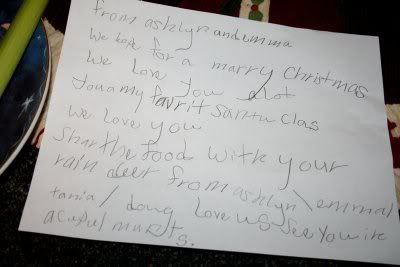 from ashlyn and emma
We hope for a marry Christmas
We Love you alot
You a my favrit Santu Clas
We Love you
Shar the food with your
rain deer from ashlyn \ emma /
tania / doug Love us see you in
a cuful munets.